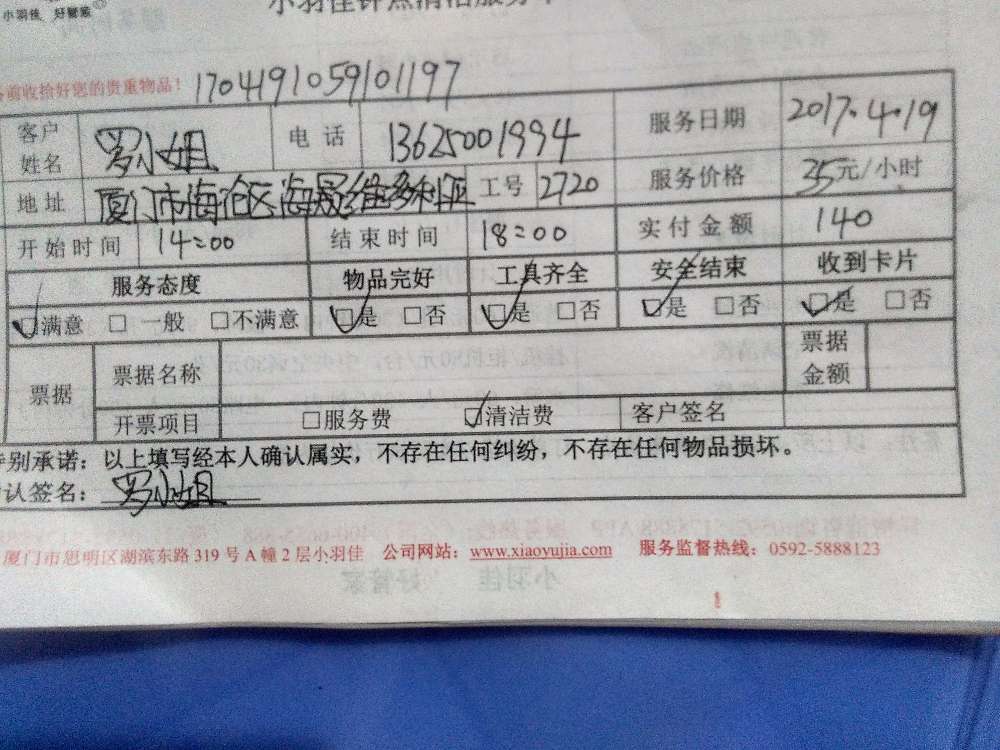 小羽佳 好管家
小羽佳钟点清洁服务单
务前收拾好您的贵重物品! 1704191059101197
客户姓名 罗小姐 电话 13625001994 服务日期 2017.4.19
地址 厦门市海沧区海晟维多利亚 工号 2720 服务价格 35元/小时
开始时间 14:00 结束时间 18:00 实付金额 140
服务态度 物品完好 工具齐全 安全结束 收到卡片
☑满意 □一般 □不满意 ☑是 □否 ☑是 □否 ☑是 □否 ☑是 □否
票据 票据名称 票据金额
开票项目 □服务费 ☑清洁费 客户签名
特别承诺：以上填写经本人确认属实，不存在任何纠纷，不存在任何物品损坏。
确认签名：罗小姐
厦门市思明区湖滨东路 319 号 A 幢 2 层小羽佳 公司网站：www.xiaoyujia.com 服务监督热线：0592-5888123